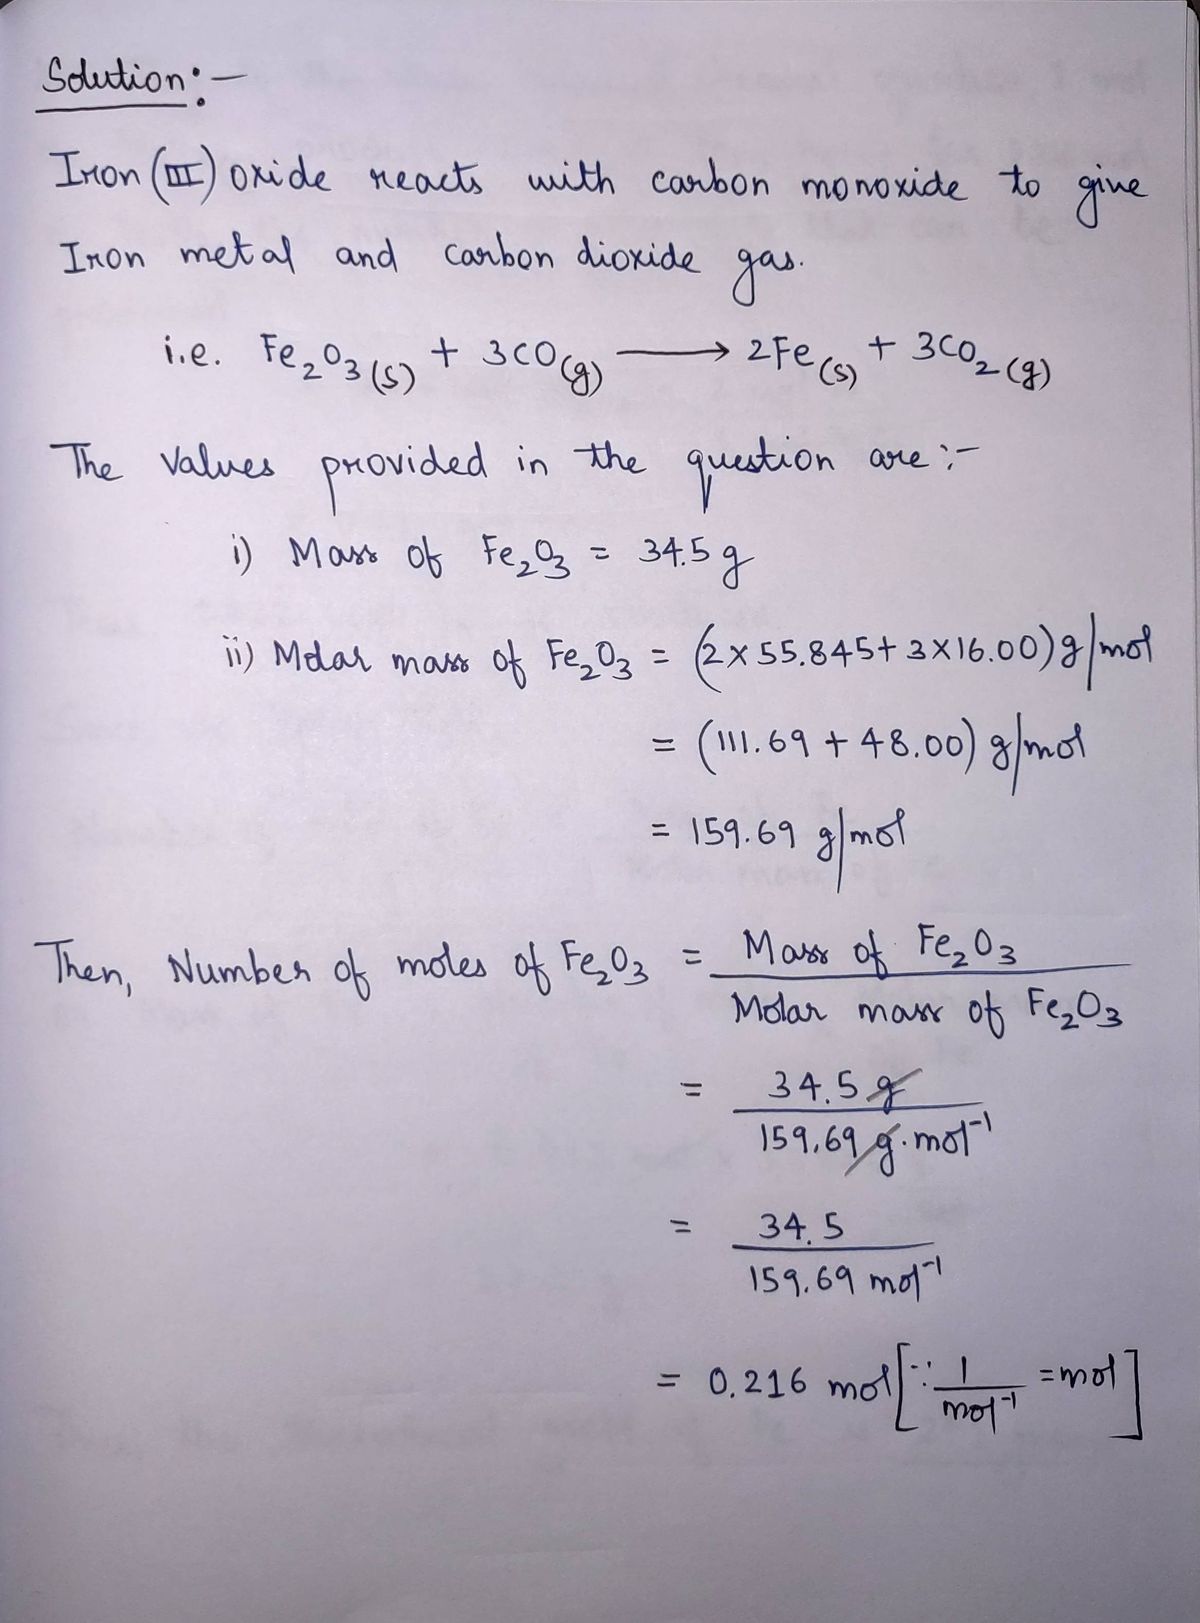 Solution:-
Iron (III) oxide reacts with carbon monoxide to give
Iron metal and carbon dioxide gas.
i.e. Fe₂O₃(s) + 3CO(g) ⟶ 2Fe(s) + 3CO₂(g)
The values provided in the question are :-
i) Mass of Fe₂O₃ = 34.5 g
ii) Molar mass of Fe₂O₃ = (2×55.845+ 3×16.00) g/mol
= (111.69 + 48.00) g/mol
= 159.69 g/mol
Then, Number of moles of Fe₂O₃ = Mass of Fe₂O₃
Molar mass of Fe₂O₃
= 34.5 g
159.69 g.mol⁻¹
= 34.5
159.69 mol⁻¹
= 0.216 mol [∵ 1/mol⁻¹ = mol]